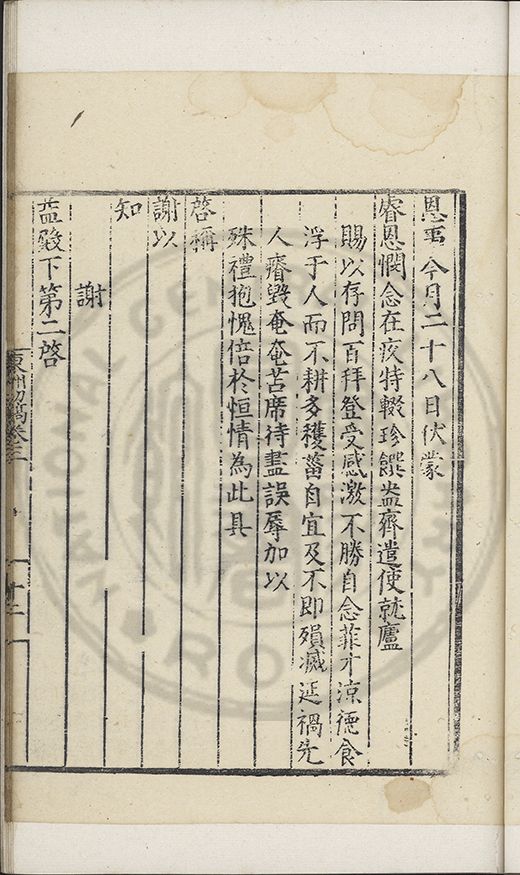 恩兩 今月二十八日伏蒙
睿恩憫念在疚特輟珍饌尙齊遣使就廬
賜以存問百拜登受感激不勝自念菲才涼德食
浮于人而不耕多穫菑自宜及不即殞滅延禍先
人瘠毀奄奄苫席待盡誤辱加以
殊禮抱愧倍於恒情為此具
啓稱
謝以
知
謝
世殿下第二啓
卷三